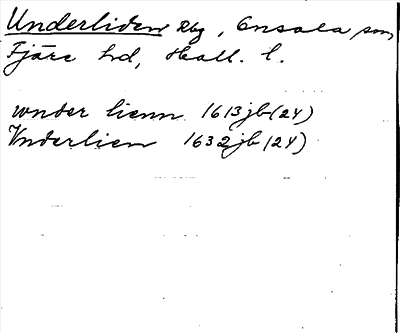 Underliden Rby, Onsala sn,
Fjäre hd, Hall. l.
wnder lienn 1613 jb (24)
Vnderlien 1632 jb (24)